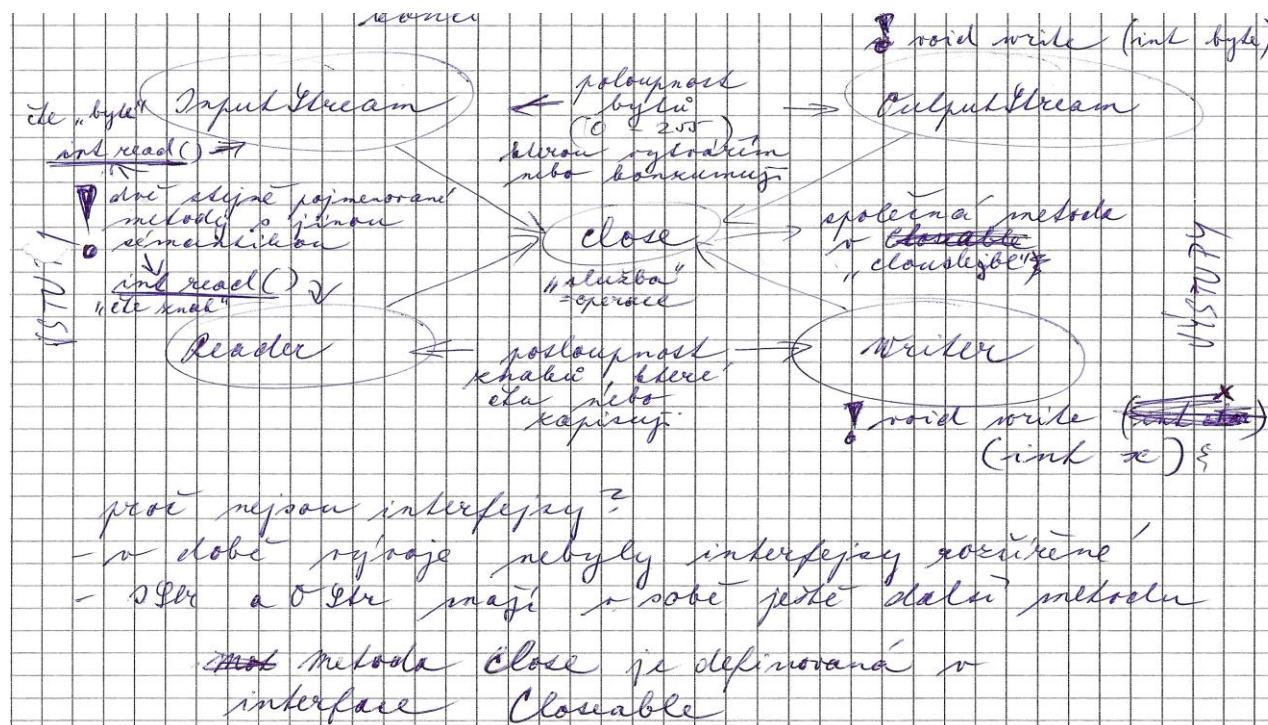 void write (int byte)
InputStream
posloupnost
bytů
(0 - 255)
kterou vytvářím
nebo konzumuji
OutputStream
čte „byte"
int read()
dvě stejně pojmenované
metody s jinou
sémantikou
int read()
„čte znak"
VSTUPY
close
„služba"
=operace
společná metoda
v Closeable
„clouslejbl"
VÝSTUPY
Reader
posloupnost
znaků které
čtu nebo
zapisuji
Writer
void write
(int x)
proč nejsou interfejsy?
- v době vývoje nebyly interfejsy rozšířené
- IStr a OStr mají v sobě ještě další metodu
metoda close je definovaná v
interface Closeable